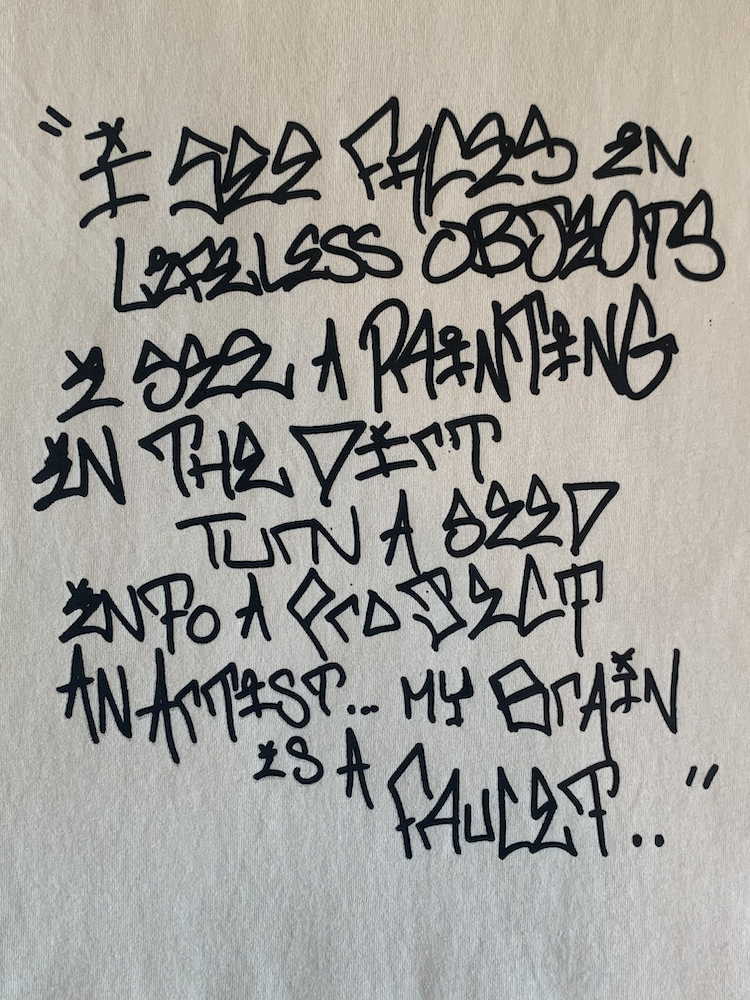 "I SEE FACES IN
LIFELESS OBJECTS
I SEE A PAINTING
IN THE DIRT
TURN A SEED
INTO A PROJECT
AN ARTIST... MY BRAIN
IS A
FAUCET.."